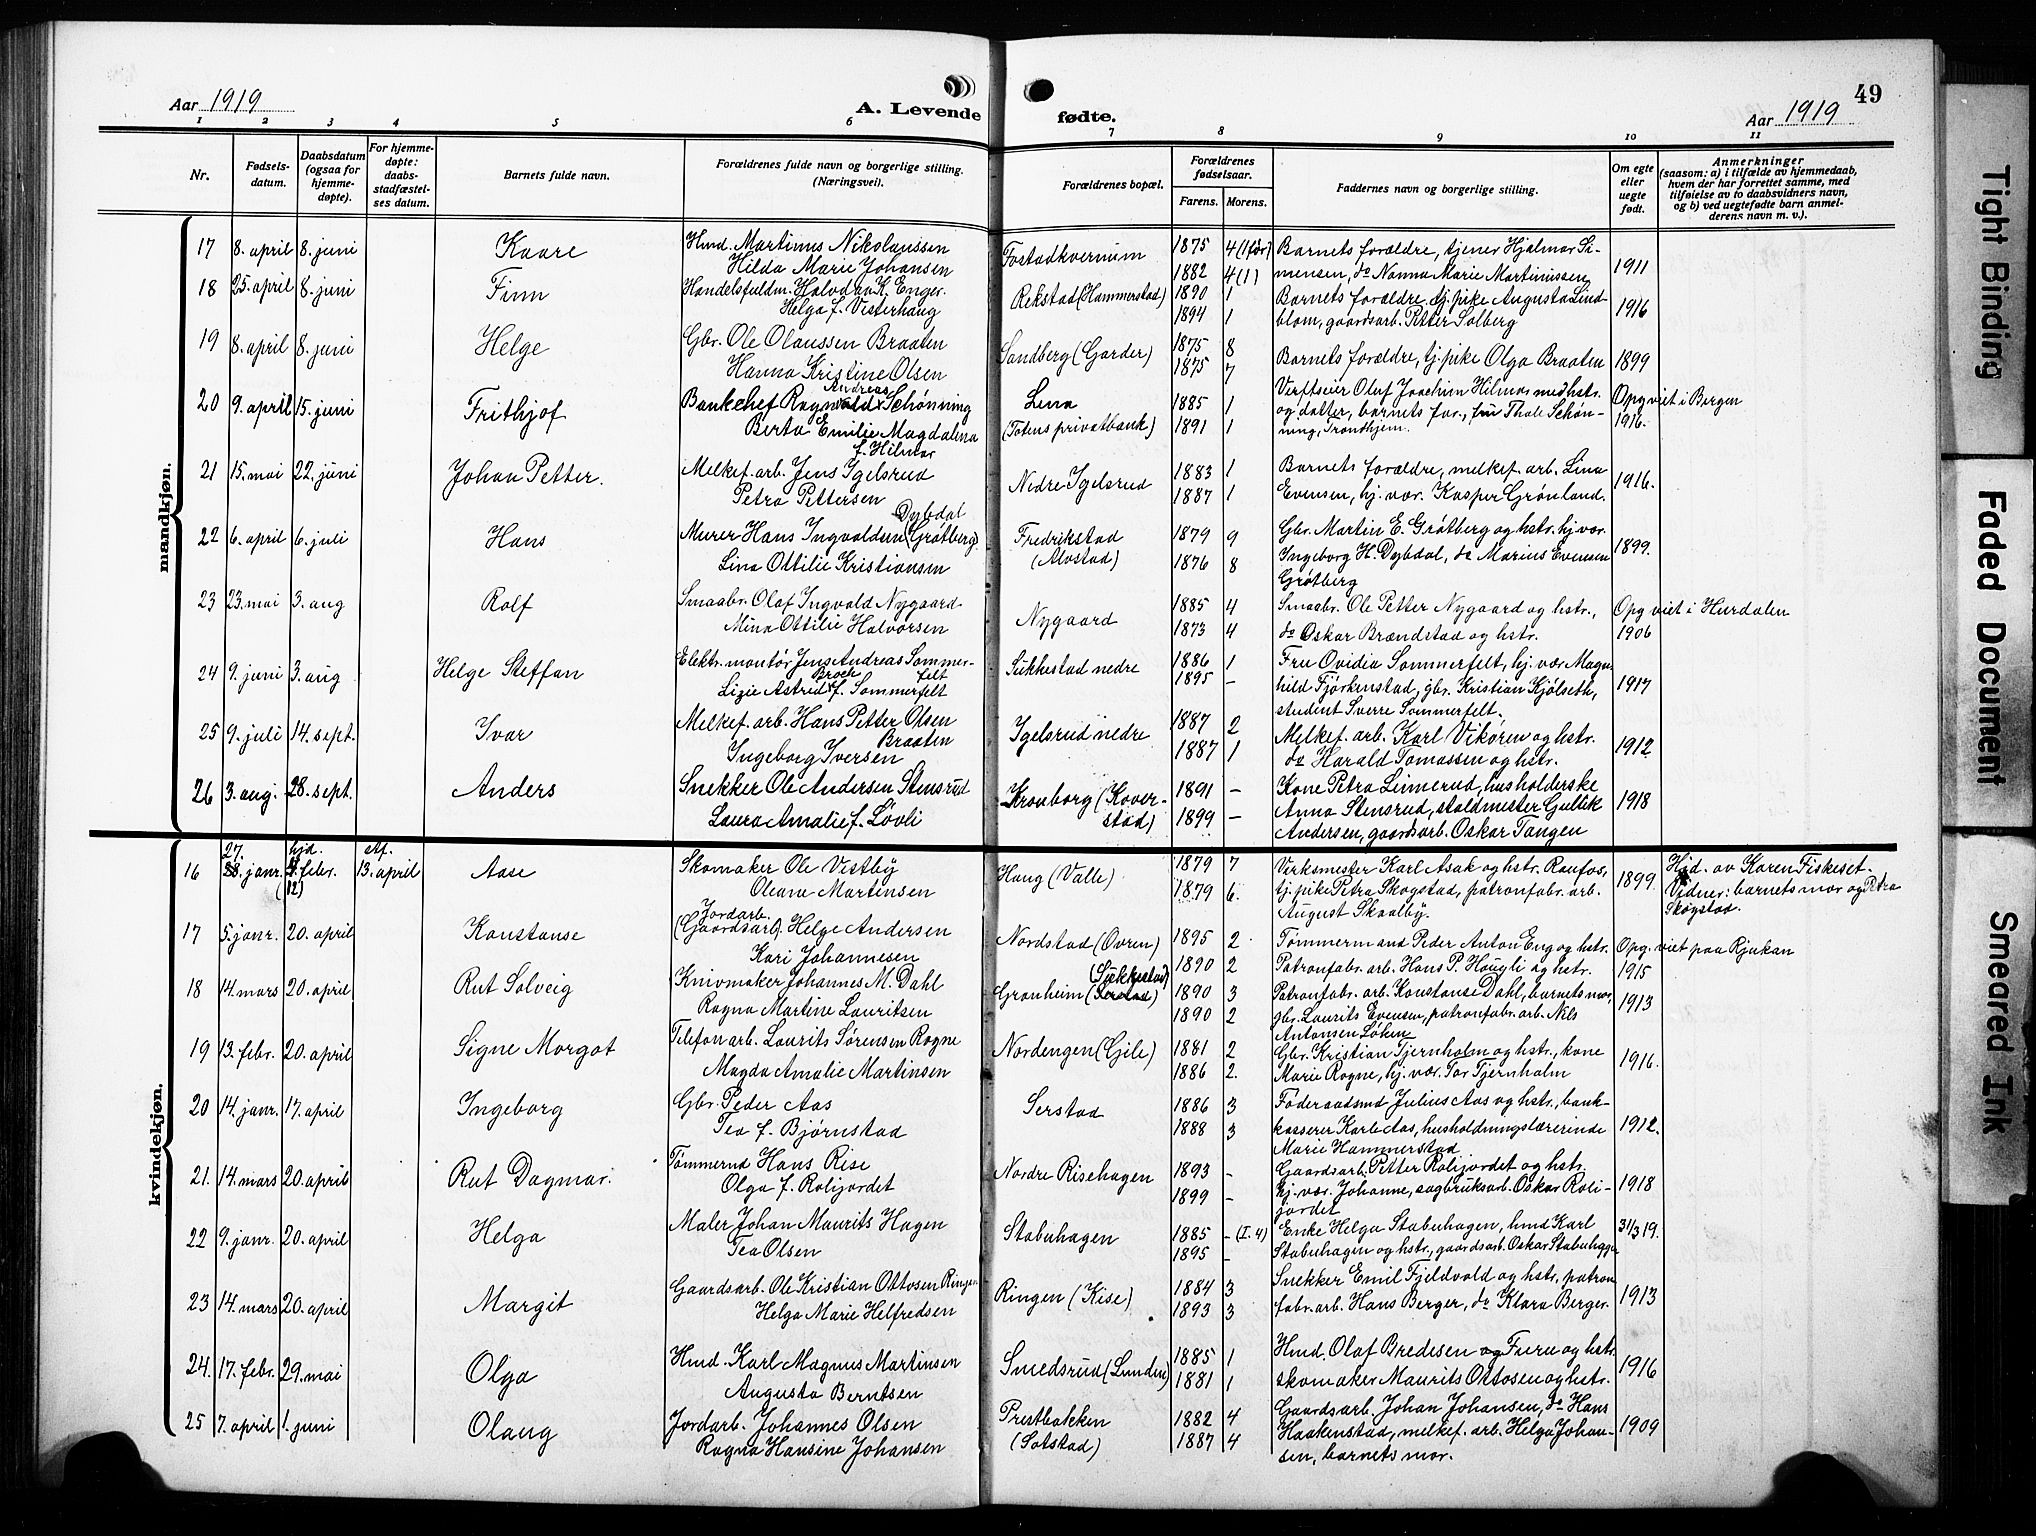 Aar 1919
A. Levende fødte.
Aar 1919
49
1 2 3 4 5 6 7 8 9 10 11
Nr.
Fødsels-
datum.
Daabsdatum
(ogsaa for
hjemme-
døpte).
For hjemme-
døpte:
daabs-
stadfæstel-
ses datum.
Barnets fulde navn.
Forældrenes fulde navn og borgerlige stilling.
(Næringsvei).
Forældrenes bopæl.
Forældrenes
fødselsaar.
Farens. Morens.
Faddernes navn og borgerlige stilling.
Om egte
eller
uegte
født.
Anmerkninger
(saasom: a) i tilfælde av hjemmedaab,
hvem der har forrettet samme, med
tilføielse av to daabsvidners navn,
og b) ved uegtefødte barn anmel-
derens navn m. v.).
mandkjøn.
17 8. april 8. juni Kaare Hmd. Martinus Nikolaussen
Hilda Marie Johansen
Fostadkvernum 1875 4 (1 før)
1882 4 (1)
Barnets forældre, tjener Hjalmar Si-
mensen, do Nanna Marie Martinussen 1911
18 25. april 8. juni Finn Handelsfuldm. Halvdan K. Enger
Helga f. Visterhaug
Rekstad (Hammerstad) 1890 1
1894 1
Barnets forældre, tj. pike Augusta Lind-
blom, gaardsarb. Petter Solberg 1916
19 8. april 8. juni Helge Gbr. Ole Olaussen Braaten
Hanna Kristine Olsen
Sandberg (Garder) 1875 8
1875 7
Barnets forældre, tj. pike Olga Braaten 1899
20 9. april 15. juni Frithjof Bankchef Ragnvald Andreas Schønning
Berta Emilie Magdalena
f. Hilmar
Lena
(Totens privatbank)
1885 1
1891 1
Verftseier Oluf Joachim Hilmar med hstr.
og datter, barnets far, fru Thale Schøn-
ning, Trondhjem.
Opg viet i Bergen
1916.
21 15. mai 22. juni Johan Petter. Melkef. arb. Jens Igelsrud
Petra Pettersen
Nedre Igelsrud 1883 1
1887 1
Barnets forældre, melkef. arb. Lina
Evensen, hj. vær. Kasper Grønland. 1916.
22 6. april 6. juli Hans Murer Hans Ingvaldsen Dybdal (Grøtberg)
Lina Ottilie Kristiansen
Fredrikstad
(Alvstad)
1879 9
1876 8
Gbr. Martin E. Grøtberg og hstr. hj. vær.
Ingeborg H. Dybdal, do Marius Evensen
Grøtberg
1899.
23 23. mai 3. aug Rolf Smaabr. Olaf Ingvald Nygaard
Mina Ottilie Halvorsen
Nygaard 1885 4
1873 4
Smaabr. Ole Petter Nygaard og hstr.,
do Oskar Brændstad og hstr.
Opg viet i Hurdalen
1906
24 9. juni 3. aug Helge Steffan Elektr. montør Jens Andreas Sommer-
felt
Lizie Astrid Broch f. Sommerfelt
Sukkestad nedre 1886 1
1895 –
Fru Ovidia Sommerfelt, hj. vær Magn-
hild Fjørkenstad, gbr. Kristian Kjølseth,
student Sverre Sommerfelt.
1917
25 9. juli 14. sept. Ivar Melkef. arb. Hans Petter Olsen
Braaten
Ingeborg Iversen
Igelsrud nedre 1887 2
1887 1
Melkef. arb. Karl Vikøren og hstr.
do Harald Tomassen og hstr.
1912
26 3. aug. 28. sept. Anders Snekker Ole Andersen Stensrud
Laura Amalie f. Løvli
Kronborg (Kover-
stad)
1891 –
1899 –
Kone Petra Linnerud, husholderske
Anna Stensrud, staldmester Gullik
Andersen, gaardsarb. Oskar Tangen
1918
kvindekjøn.
16 27. 28. janr. hjd. febr. (12) stf. 13. april Aase Skomaker Ole Vestby
Oleane Martinsen
Haug (Valle) 1879 7
1879 6.
Virksmester Karl Asak og hstr. Raufos,
tj. pike Petra Skogstad, patronfabr. arb.
August Skaalby.
1899. Hjd. av Karen Fiskeset-
Vidner: barnets mor og Petra
Skøgstad.
17 5. janr. 20. april Konstanse Jordarb.
(Gaardsarb). Helge Andersen
Kari Johannesen
Nordstad (Ovren) 1895 2
1890 2
Tømmermand Peder Anton Eng og hstr.
Patronfabr. arb. Hans P. Haugli og hstr.
Opg. viet paa Rjukan
1915
18 14. mars 20. april Rut Solveig Knivmaker Johannes M. Dahl
Ragna Martine Lauritsen
(Sukkestad)
Grønheim (Serstad)
1890 3
1890 2
Patronfabr. arb. Konstanse Dahl, barnets mor
gbr. Laurits Evensen, patronfabr. arb. Nils
Antonsen Løken
1913
19 13. febr. 20. april Signe Margot Telefonarb. Laurits Sørensen Rogne
Magda Amalie Martinsen
Nordengen (Gile) 1881 2
1886 2.
Gbr. Kristian Tjernholm og hstr., kone
Marie Rogne, hj. vær. Tor Tjernholm
1916.
20 14. janr. 17. april Ingeborg Gbr. Peder Aas
Tea f. Bjørnstad
Serstad 1886 3
1888 3
Føderaadsmd Julius Aas og hstr., bank-
kasserer Karl Aas, husholdningslærerinde
Marie Hammerstad
1912.
21. 14. mars 20. april Rut Dagmar. Tømmermd Hans Rise
Olga f. Rolijordet
Nordre Risehagen 1893 –
1899 –
Gaardsarb. Petter Rolijordet og hstr.
hj. vær. Johanne, sagbruksarb. Oskar Roli-
jordet
1918
22 9. janr. 20. april Helga Maler Johan Maurits Hagen
Tea Olsen
Stabuhagen 1885 – (I. 4)
1895 –
Enke Helga Stabuhagen, hmd Karl
Stabuhagen og hstr., gaardsarb. Oskar Stabuhagen
31/3 19.
23 14. mars 20. april Margit Gaardsarb. Ole Kristian Ottosen Ringen
Helga Marie Helfredsen
Ringen (Kise) 1884 3
1893 3
Snekker Emil Fjeldvold og hstr., patron
fabr. arb. Hans Berger, do Klara Berger.
1913
24. 17. febr. 29. mai Olga Hmd. Karl Magnus Martinsen
Augusta Berntsen
Smedsrud (Lunden) 1885 1
1881 1
Hmd. Olaf Bredesen og Furu og hstr.
skomaker Maurits Ottosen og hstr.
1916
25 7. april 1. juni Olaug Jordarb. Johannes Olsen
Ragna Hansine Johansen
Prestbakken
(Sotstad)
1882 4
1887 4
Gaardsarb. Johan Johansen, do Hans
Haakenstad, melkef. arb. Helga Johan-
sen, barnets mor.
1909
Tight Binding
Faded Document
Smeared Ink